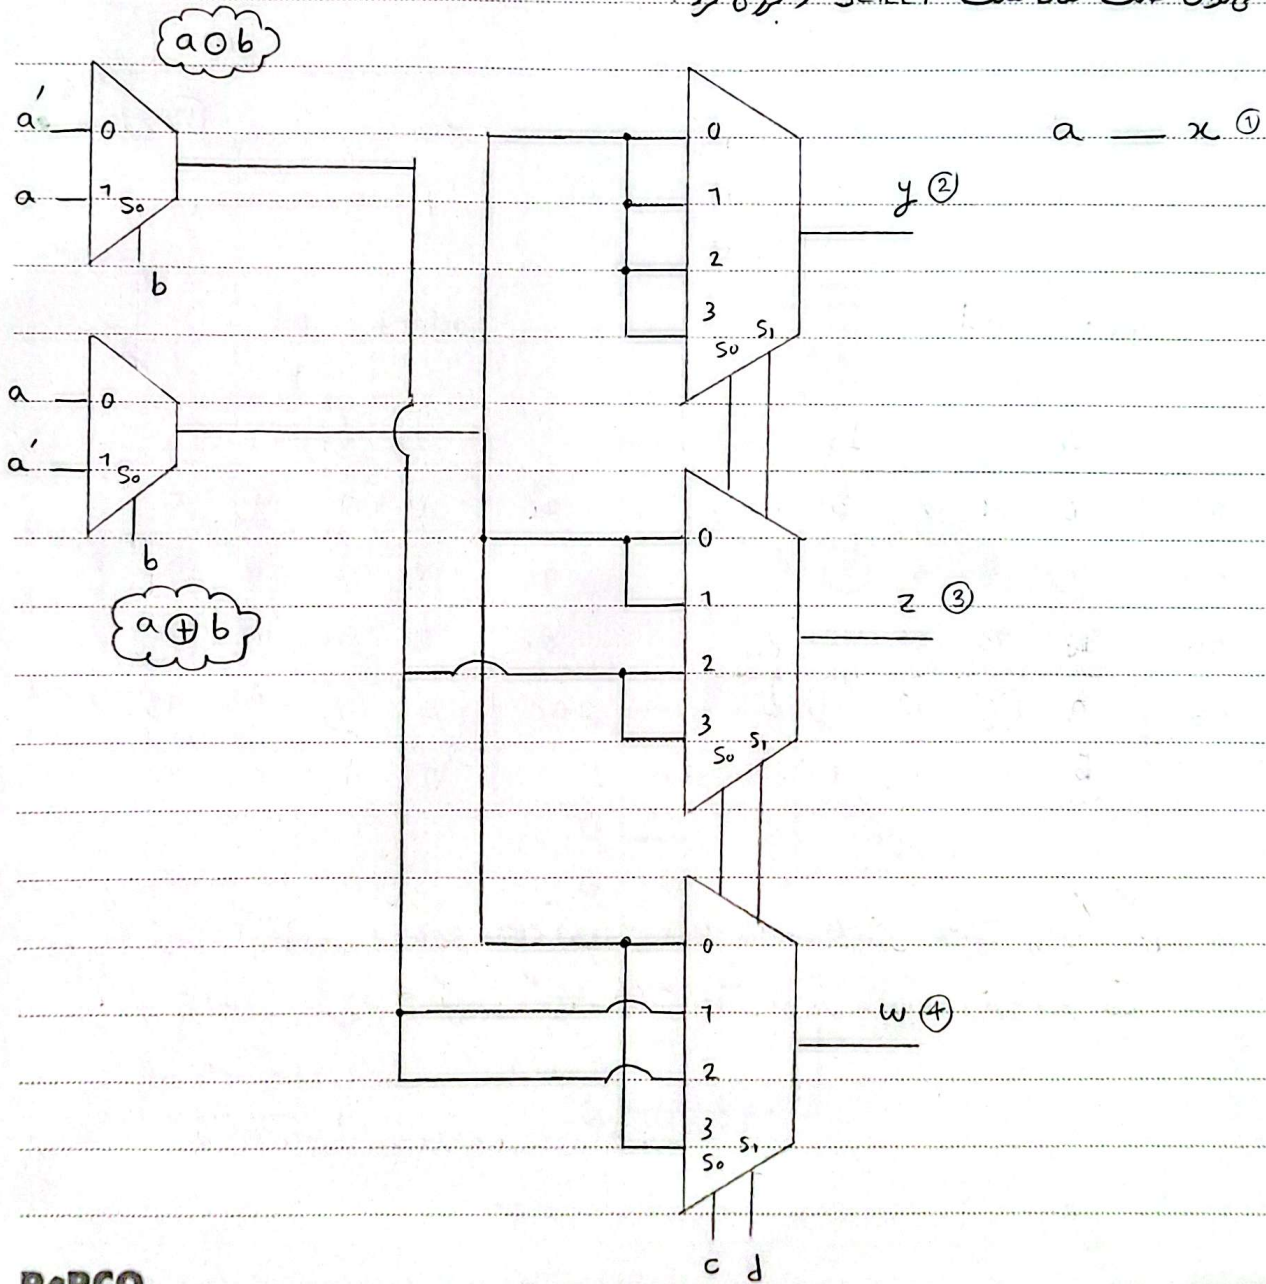 SELECT
a ⊙ b
a'
0
a
1
S₀
b
a
0
a'
1
S₀
b
a ⊕ b
0
1
2
3
S₀ S₁
a — x ①
y ②
0
1
2
3
S₀ S₁
z ③
0
1
2
3
S₀ S₁
w ④
c d